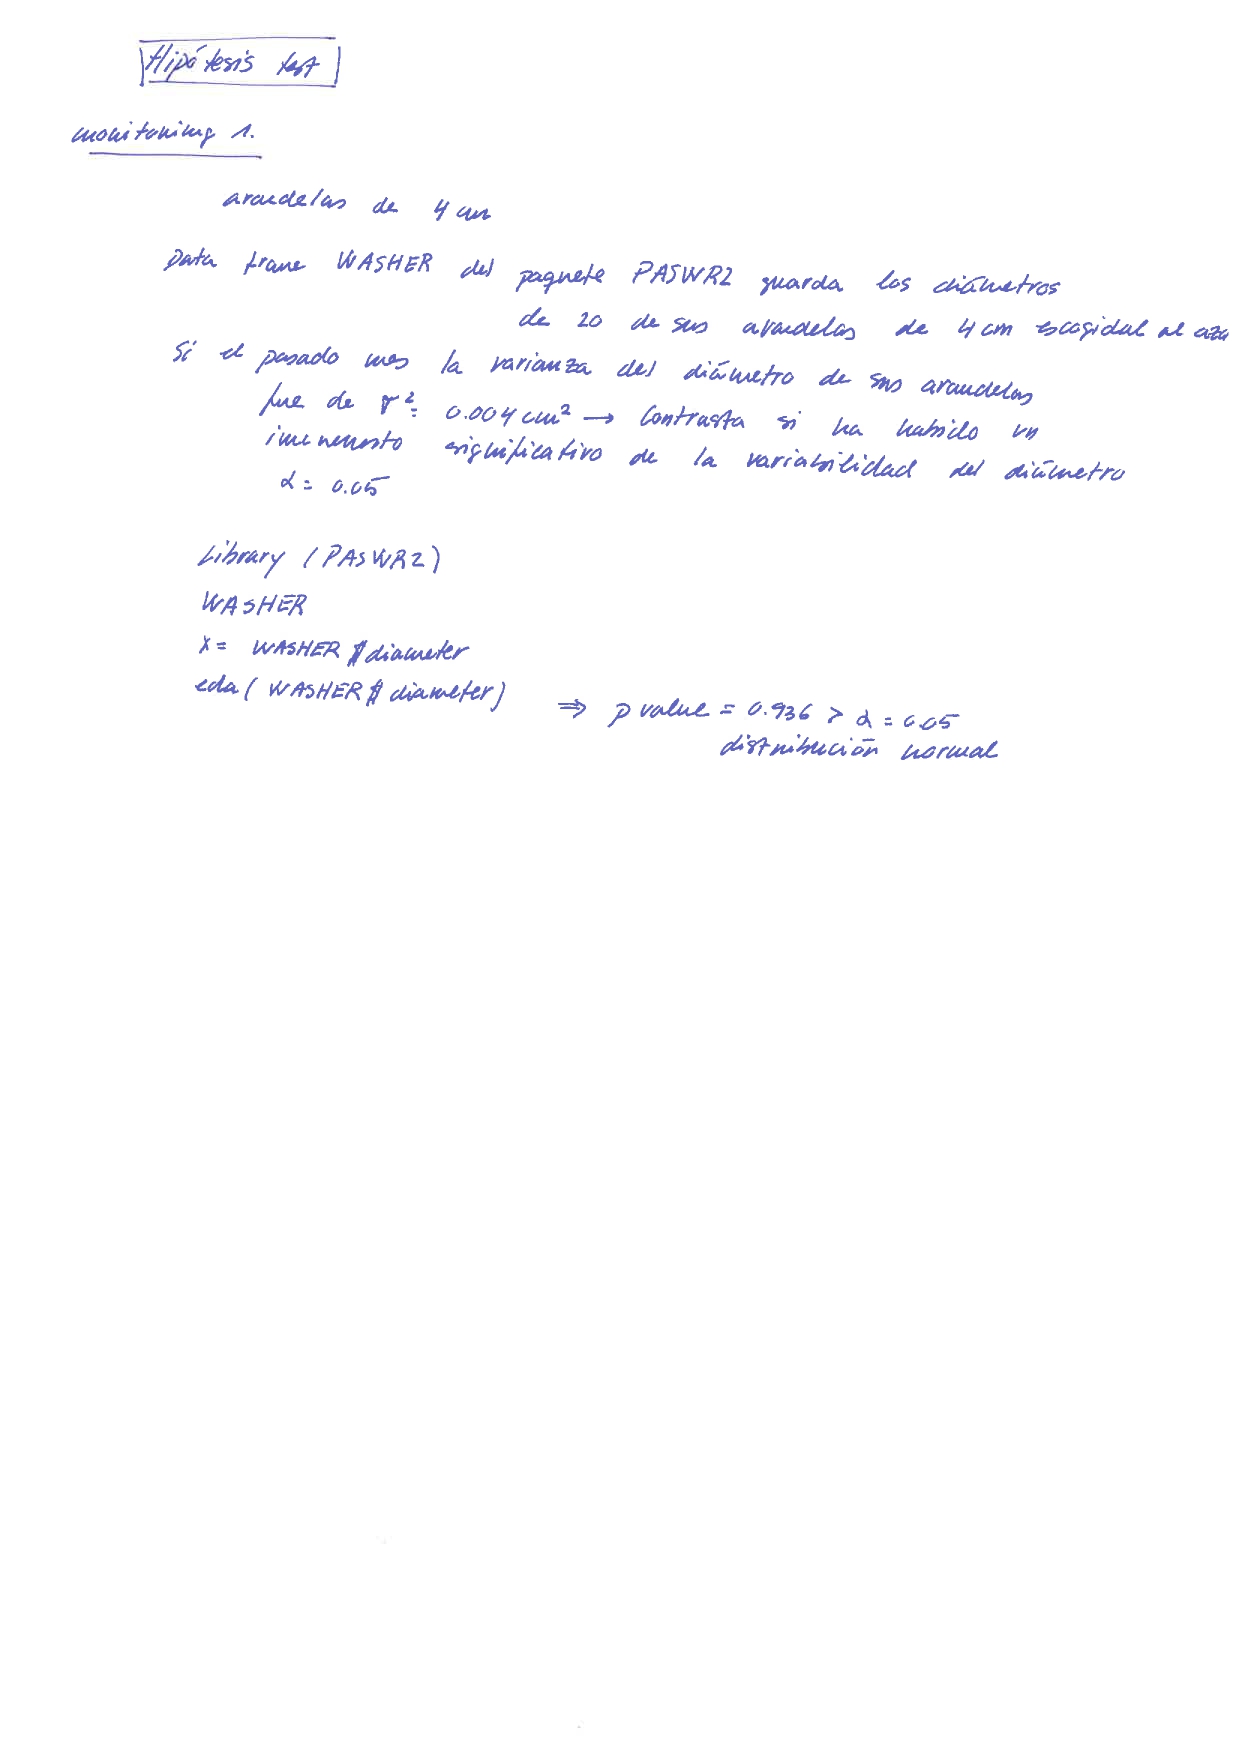 Hipótesis test
monitoring 1.
arandelas de 4 cm
Data frame WASHER del paquete PASWR2 guarda los diámetros
de 20 de sus arandelas de 4 cm escogidal al azar
Si el pasado mes la varianza del diámetro de sus arandelas
fue de σ²= 0.004 cm² → Contrasta si ha habido un
incremento significativo de la variabilidad del diámetro
α = 0.05
Library (PASWR2)
WASHER
x = WASHER $diameter
eda ( WASHER $ diameter) ⇒ p value = 0.936 > α = 0.05
distribución normal